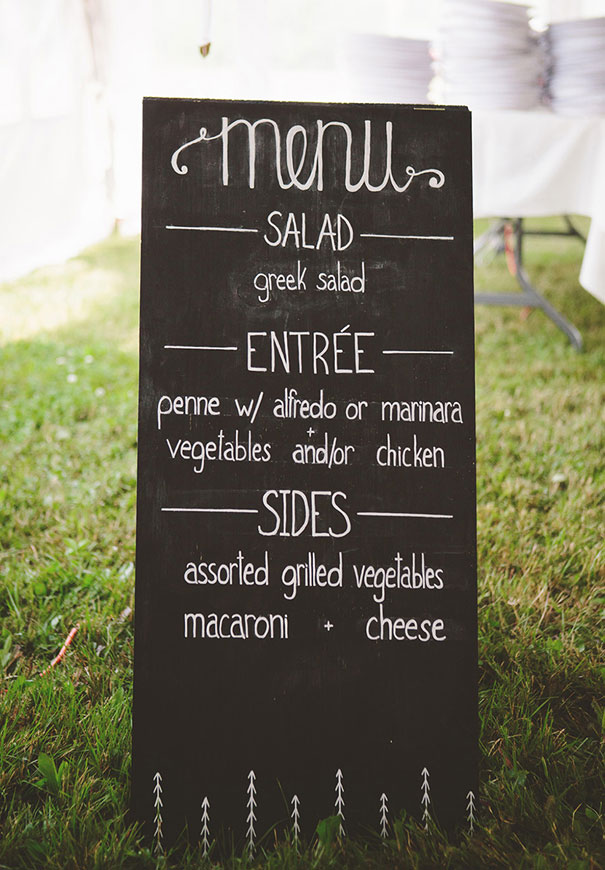 menu
SALAD
greek salad
ENTRÉE
penne w/ alfredo or marinara
+
vegetables and/or chicken
SIDES
assorted grilled vegetables
macaroni + cheese